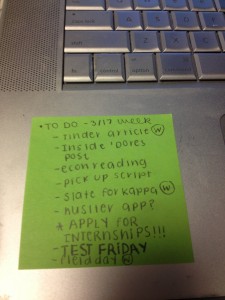 • TO DO - 3/17 week
- Tinder article W
- Inside 'Dores
post
- econ reading
- pick up script
- slate for kappa W
- hustler app?
* APPLY FOR
INTERNSHIPS!!!
- TEST FRIDAY
- field day W